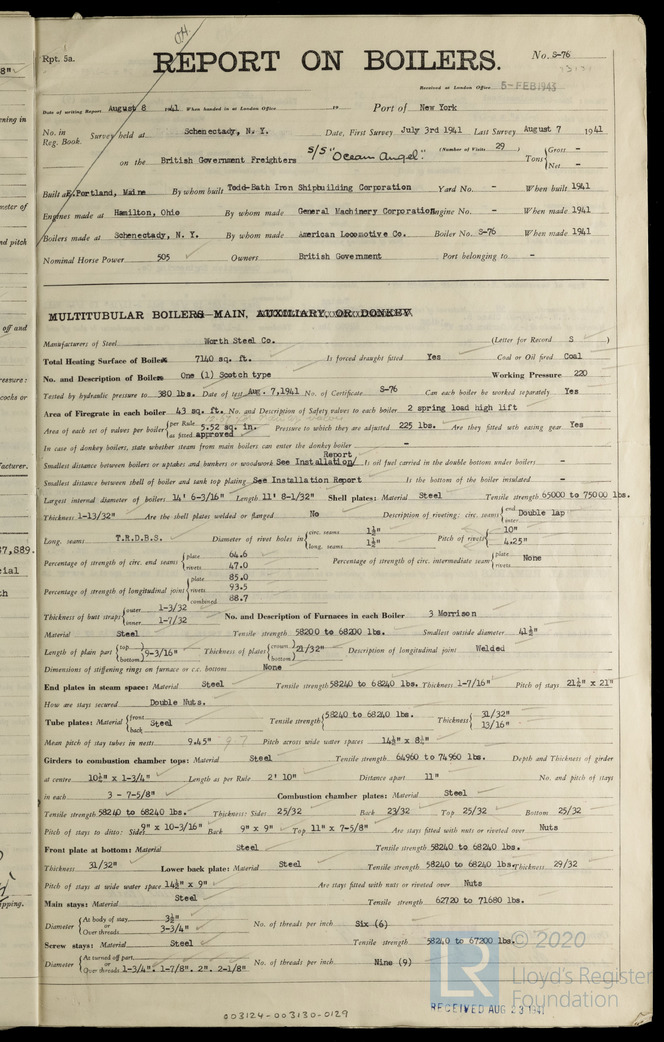 Rpt. 5a.
REPORT ON BOILERS.
No. S-76
Received at London Office 5-FEB1943
Date of writing Report August 8 1941 When handed in at London Office 19 Port of New York
No. in Reg. Book. Survey held at Schenectady, N. Y. Date, First Survey July 3rd 1941 Last Survey August 7 1941
on the British Government Freighters S/S "Ocean Angel." (Number of Visits 29) Tons { Gross - Net -
Built at E.Portland, Maine By whom built Todd-Bath Iron Shipbuilding Corporation Yard No. - When built 1941
Engines made at Hamilton, Ohio By whom made General Machinery Corporation Engine No. - When made 1941
Boilers made at Schenectady, N. Y. By whom made American Locomotive Co. Boiler No. S-76 When made 1941
Nominal Horse Power 505 Owners British Government Port belonging to -
MULTITUBULAR BOILERS MAIN, AUXILIARY, OR DONKEY
Manufacturers of Steel Worth Steel Co. (Letter for Record S )
Total Heating Surface of Boilers 7140 sq. ft. Is forced draught fitted Yes Coal or Oil fired Coal
No. and Description of Boilers One (1) Scotch type Working Pressure 220
Tested by hydraulic pressure to 380 lbs. Date of test Aug. 7,1941 No. of Certificate S-76 Can each boiler be worked separately Yes
Area of Firegrate in each boiler 43 sq. ft. No. and Description of Safety valves to each boiler 2 spring load high lift
Area of each set of valves per boiler { per Rule 5.52 sq. in. as fitted approved Pressure to which they are adjusted 225 lbs. Are they fitted with easing gear Yes
In case of donkey boilers, state whether steam from main boilers can enter the donkey boiler -
Smallest distance between boilers or uptakes and bunkers or woodwork See Installation/ Report Is oil fuel carried in the double bottom under boilers -
Smallest distance between shell of boiler and tank top plating See Installation Report Is the bottom of the boiler insulated -
Largest internal diameter of boilers 14' 6-3/16" Length 11' 8-1/32" Shell plates: Material Steel Tensile strength 65000 to 75000 lbs.
Thickness 1-13/32" Are the shell plates welded or flanged No Description of riveting: circ. seams { end Double lap inter
Long. seams T.R.D.B.S. Diameter of rivet holes in { circ. seams 1½" long. seams 1½" Pitch of rivets { 10" 4.25"
Percentage of strength of circ. end seams { plate 64.6 rivets 47.0 Percentage of strength of circ. intermediate seam { plate rivets None
Percentage of strength of longitudinal joint { plate 85.0 rivets 93.5 combined 88.7
Thickness of butt straps { outer 1-3/32 inner 1-7/32 No. and Description of Furnaces in each Boiler 3 Morrison
Material Steel Tensile strength 58200 to 68200 lbs. Smallest outside diameter 41½"
Length of plain part { top bottom 9-3/16" Thickness of plates { crown bottom 21/32" Description of longitudinal joint Welded
Dimensions of stiffening rings on furnace or c.c. bottom None
End plates in steam space: Material Steel Tensile strength 58240 to 68240 lbs. Thickness 1-7/16" Pitch of stays 21¼" x 21"
How are stays secured Double Nuts.
Tube plates: Material { front back Steel Tensile strength { 58240 to 68240 lbs. Thickness { 31/32" 13/16"
Mean pitch of stay tubes in nests 9.45" Pitch across wide water spaces 14½" x 8¼"
Girders to combustion chamber tops: Material Steel Tensile strength 64960 to 74960 lbs. Depth and Thickness of girder
at centre 10½" x 1-3/4" Length as per Rule 2' 10" Distance apart 11" No. and pitch of stays
in each 3 - 7-5/8" Combustion chamber plates: Material Steel
Tensile strength 58240 to 68240 lbs. Thickness: Sides 25/32 Back 23/32 Top 25/32 Bottom 25/32
Pitch of stays to ditto: Sides 9" x 10-3/16" Back 9" x 9" Top 11" x 7-5/8" Are stays fitted with nuts or riveted over Nuts
Front plate at bottom: Material Steel Tensile strength 58240 to 68240 lbs.
Thickness 31/32" Lower back plate: Material Steel Tensile strength 58240 to 68240 lbs. Thickness 29/32
Pitch of stays at wide water space 14½" x 9" Are stays fitted with nuts or riveted over Nuts
Main stays: Material Steel Tensile strength 62720 to 71680 lbs.
Diameter { At body of stay 3½" or Over threads 3-3/4" No. of threads per inch Six (6)
Screw stays: Material Steel Tensile strength 58240 to 67200 lbs.
Diameter { At turned off part or Over threads 1-3/4". 1-7/8. 2". 2-1/8" No. of threads per inch Nine (9)
© 2020
LR Lloyd's Register Foundation
RECEIVED AUG 23 1941
003124-003130-0129